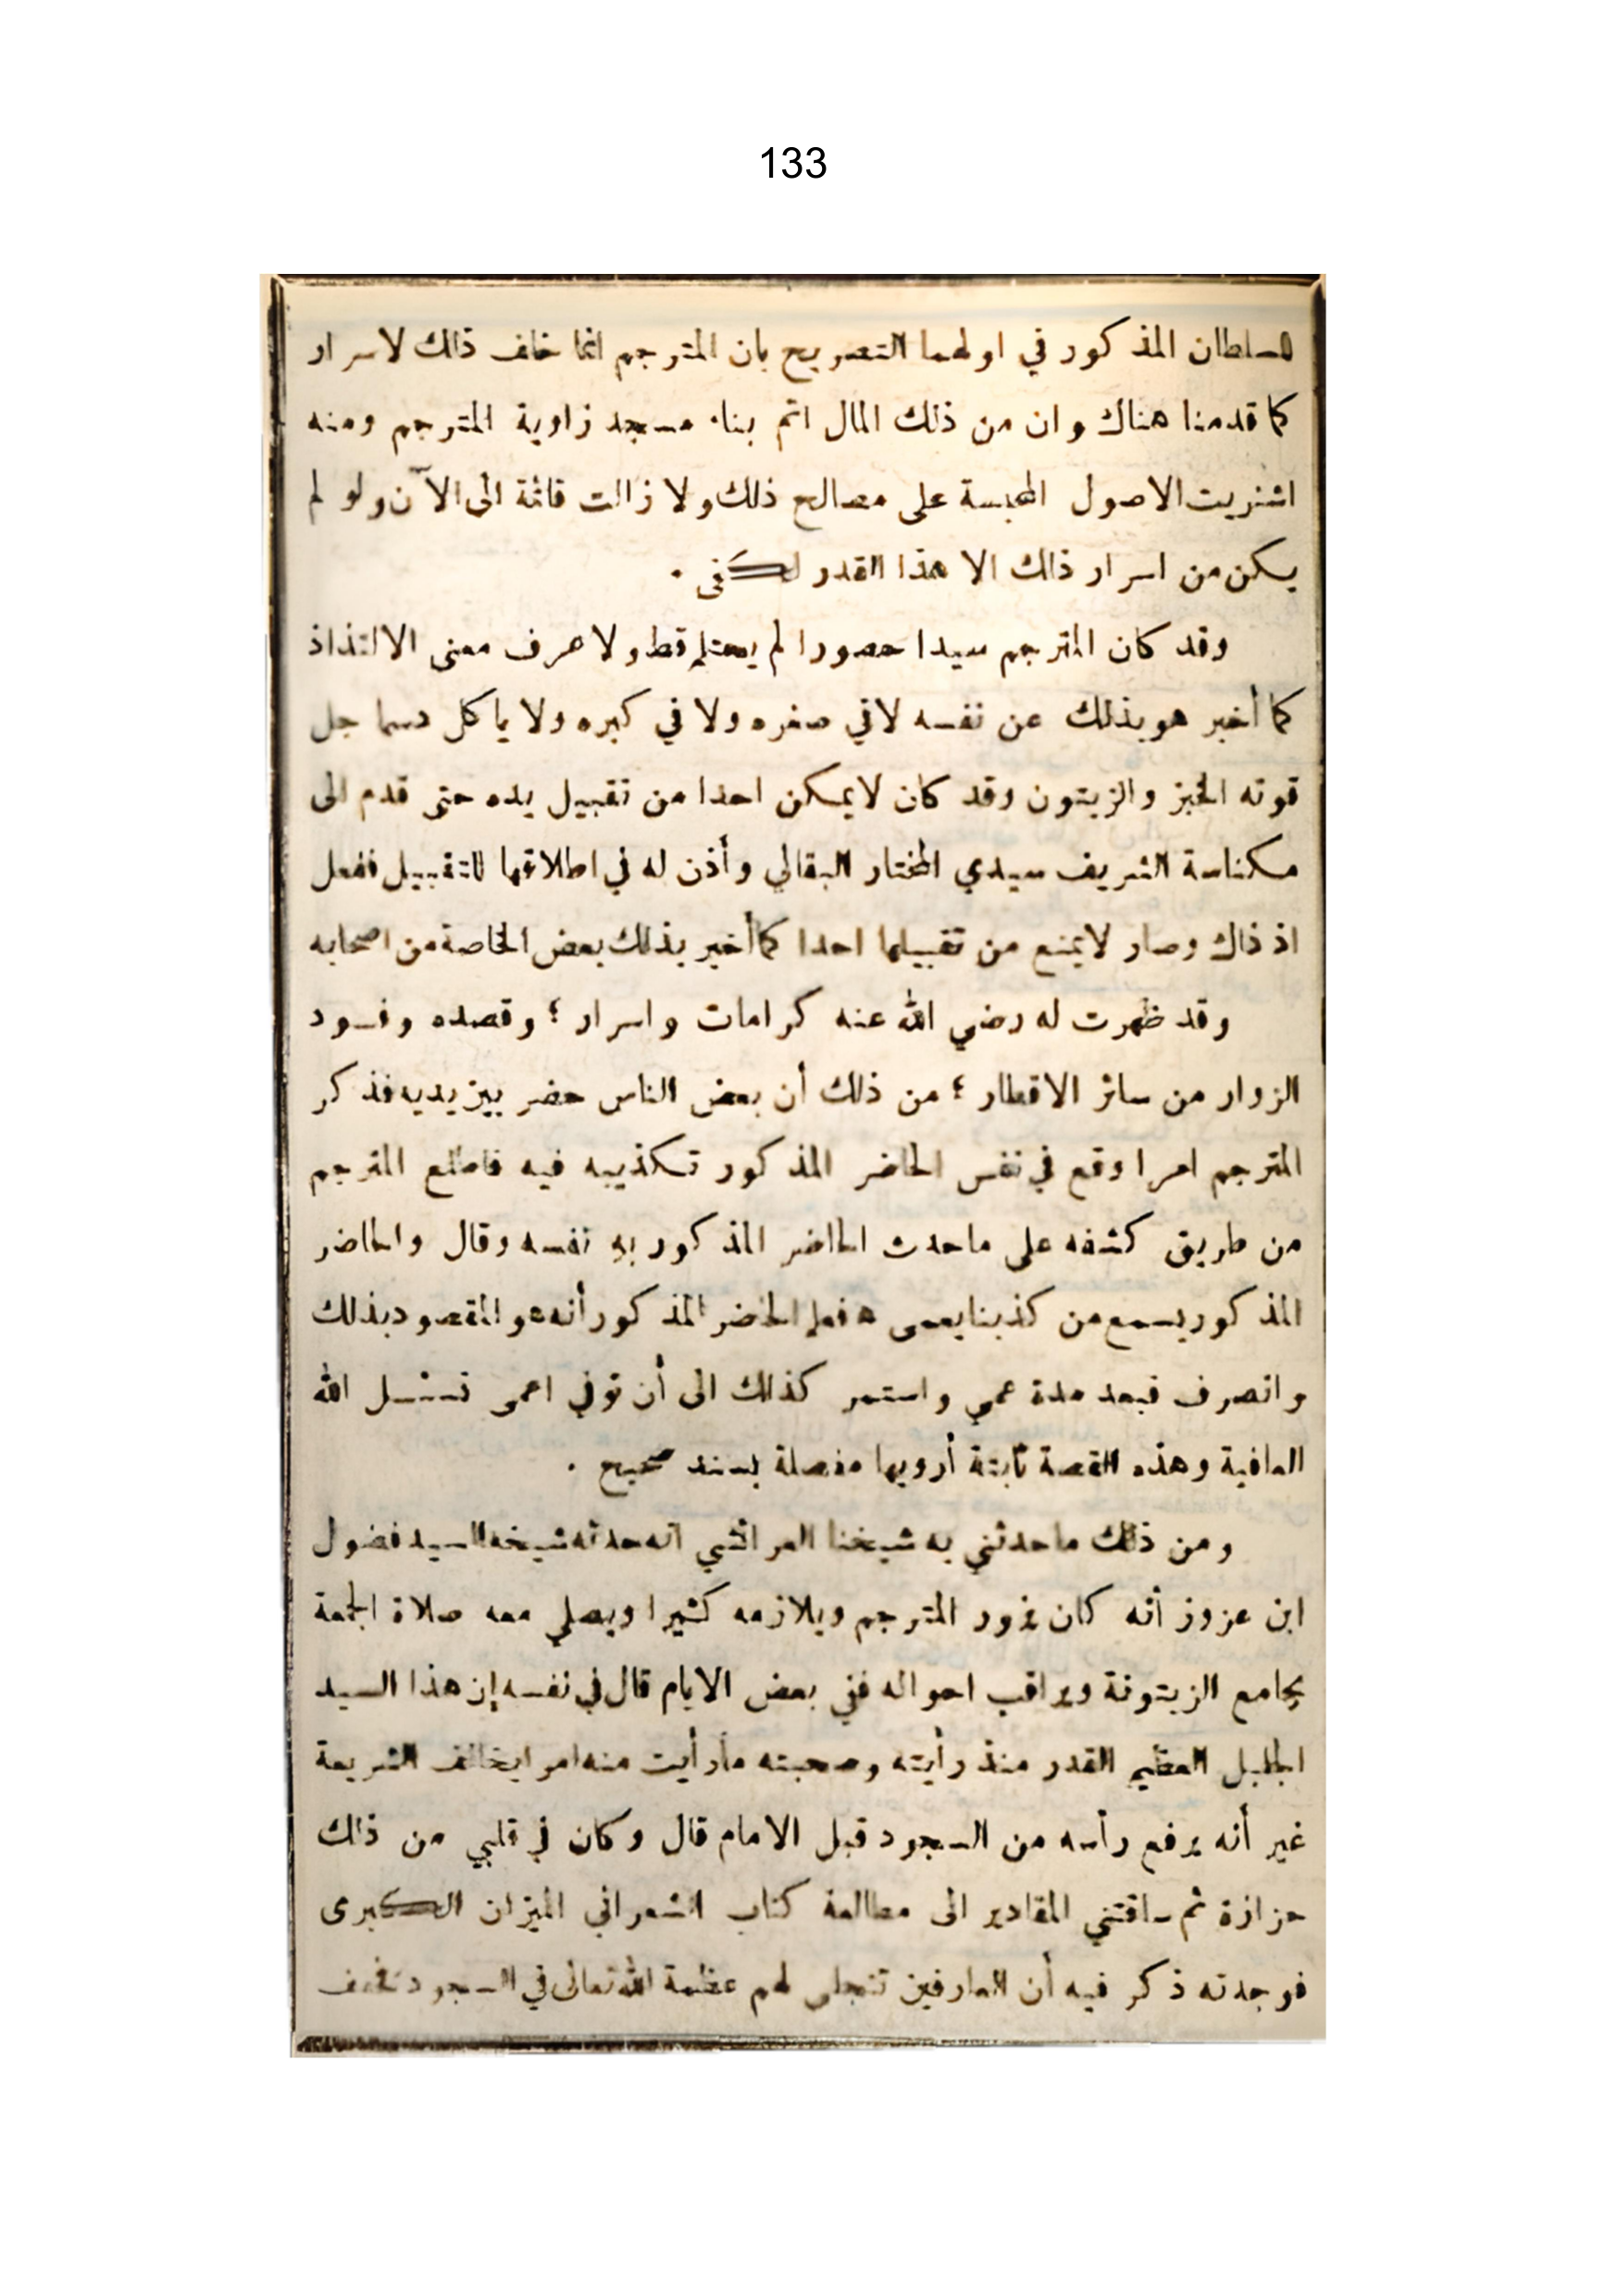 133
للسلطان المذكور في اولهما التصريح بان المترجم انما خلف ذلك لاسرار
كما قدمنا هناك وان من ذلك المال اتم بناء مسجد زاوية المترجم ومنه
اشتريت الاصول المحبسة على مصالح ذلك ولا زالت قائمة الى الآن ولو لم
يكن من اسرار ذاك الا هذا القدر لكفى .
وقد كان المترجم سيدا حصورا لم يحتلم قط ولا عرف معنى الالتذاذ
كما أخبر هو بذلك عن نفسه لا في صغره ولا في كبره ولا ياكل دسما جل
قوته الخبز والزيتون وقد كان لا يمكن احدا من تقبيل يده حتى قدم الى
مكناسة الشريف سيدي المختار البقالي وأذن له في اطلاقها للتقبيل ففعل
اذ ذاك وصار لا يمنع من تقبيلها احدا كما أخبر بذلك بعض الخاصة من اصحابه
وقد ظهرت له رضي الله عنه كرامات واسرار ؛ وقصده وفود
الزوار من سائر الاقطار ؛ من ذلك أن بعض الناس حضر بين يديه فذكر
المترجم امرا وقع في نفس الحاضر المذكور تكذيبه فيه فاطلع المترجم
من طريق كشفه على ما حدث الحاضر المذكور به نفسه وقال والحاضر
المذكور يسمع من كذبنا يعمى ه فعلم الحاضر المذكور أنه هو المقصود بذلك
وانصرف فبعد مدة عمي واستمر كذلك الى أن توفي اعمى نسئل الله
العافية وهذه القصة ثابتة أرويها مفصلة بسند صحيح .
ومن ذلك ما حدثني به شيخنا العرائشي انه حدثه شيخه السيد فضول
ابن عزوز أنه كان يزور المترجم ويلازمه كثيرا ويصلي معه صلاة الجمعة
بجامع الزيتونة ويراقب احواله ففي بعض الايام قال في نفسه إن هذا السيد
الجليل العظيم القدر منذ رأيته وصحبته ما رأيت منه امرا يخالف الشريعة
غير أنه يرفع رأسه من السجود قبل الامام قال وكان في قلبي من ذلك
حزازة ثم ساقتني المقادير الى مطالعة كتاب الشعراني الميزان الكبرى
فوجدته ذكر فيه أن العارفين تتجلى لهم عظمة الله تعالى في السجود